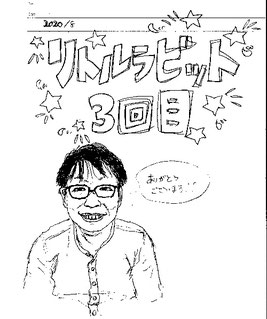 2020/8
リトルラビット
3回目
ありがとう
ございます!!